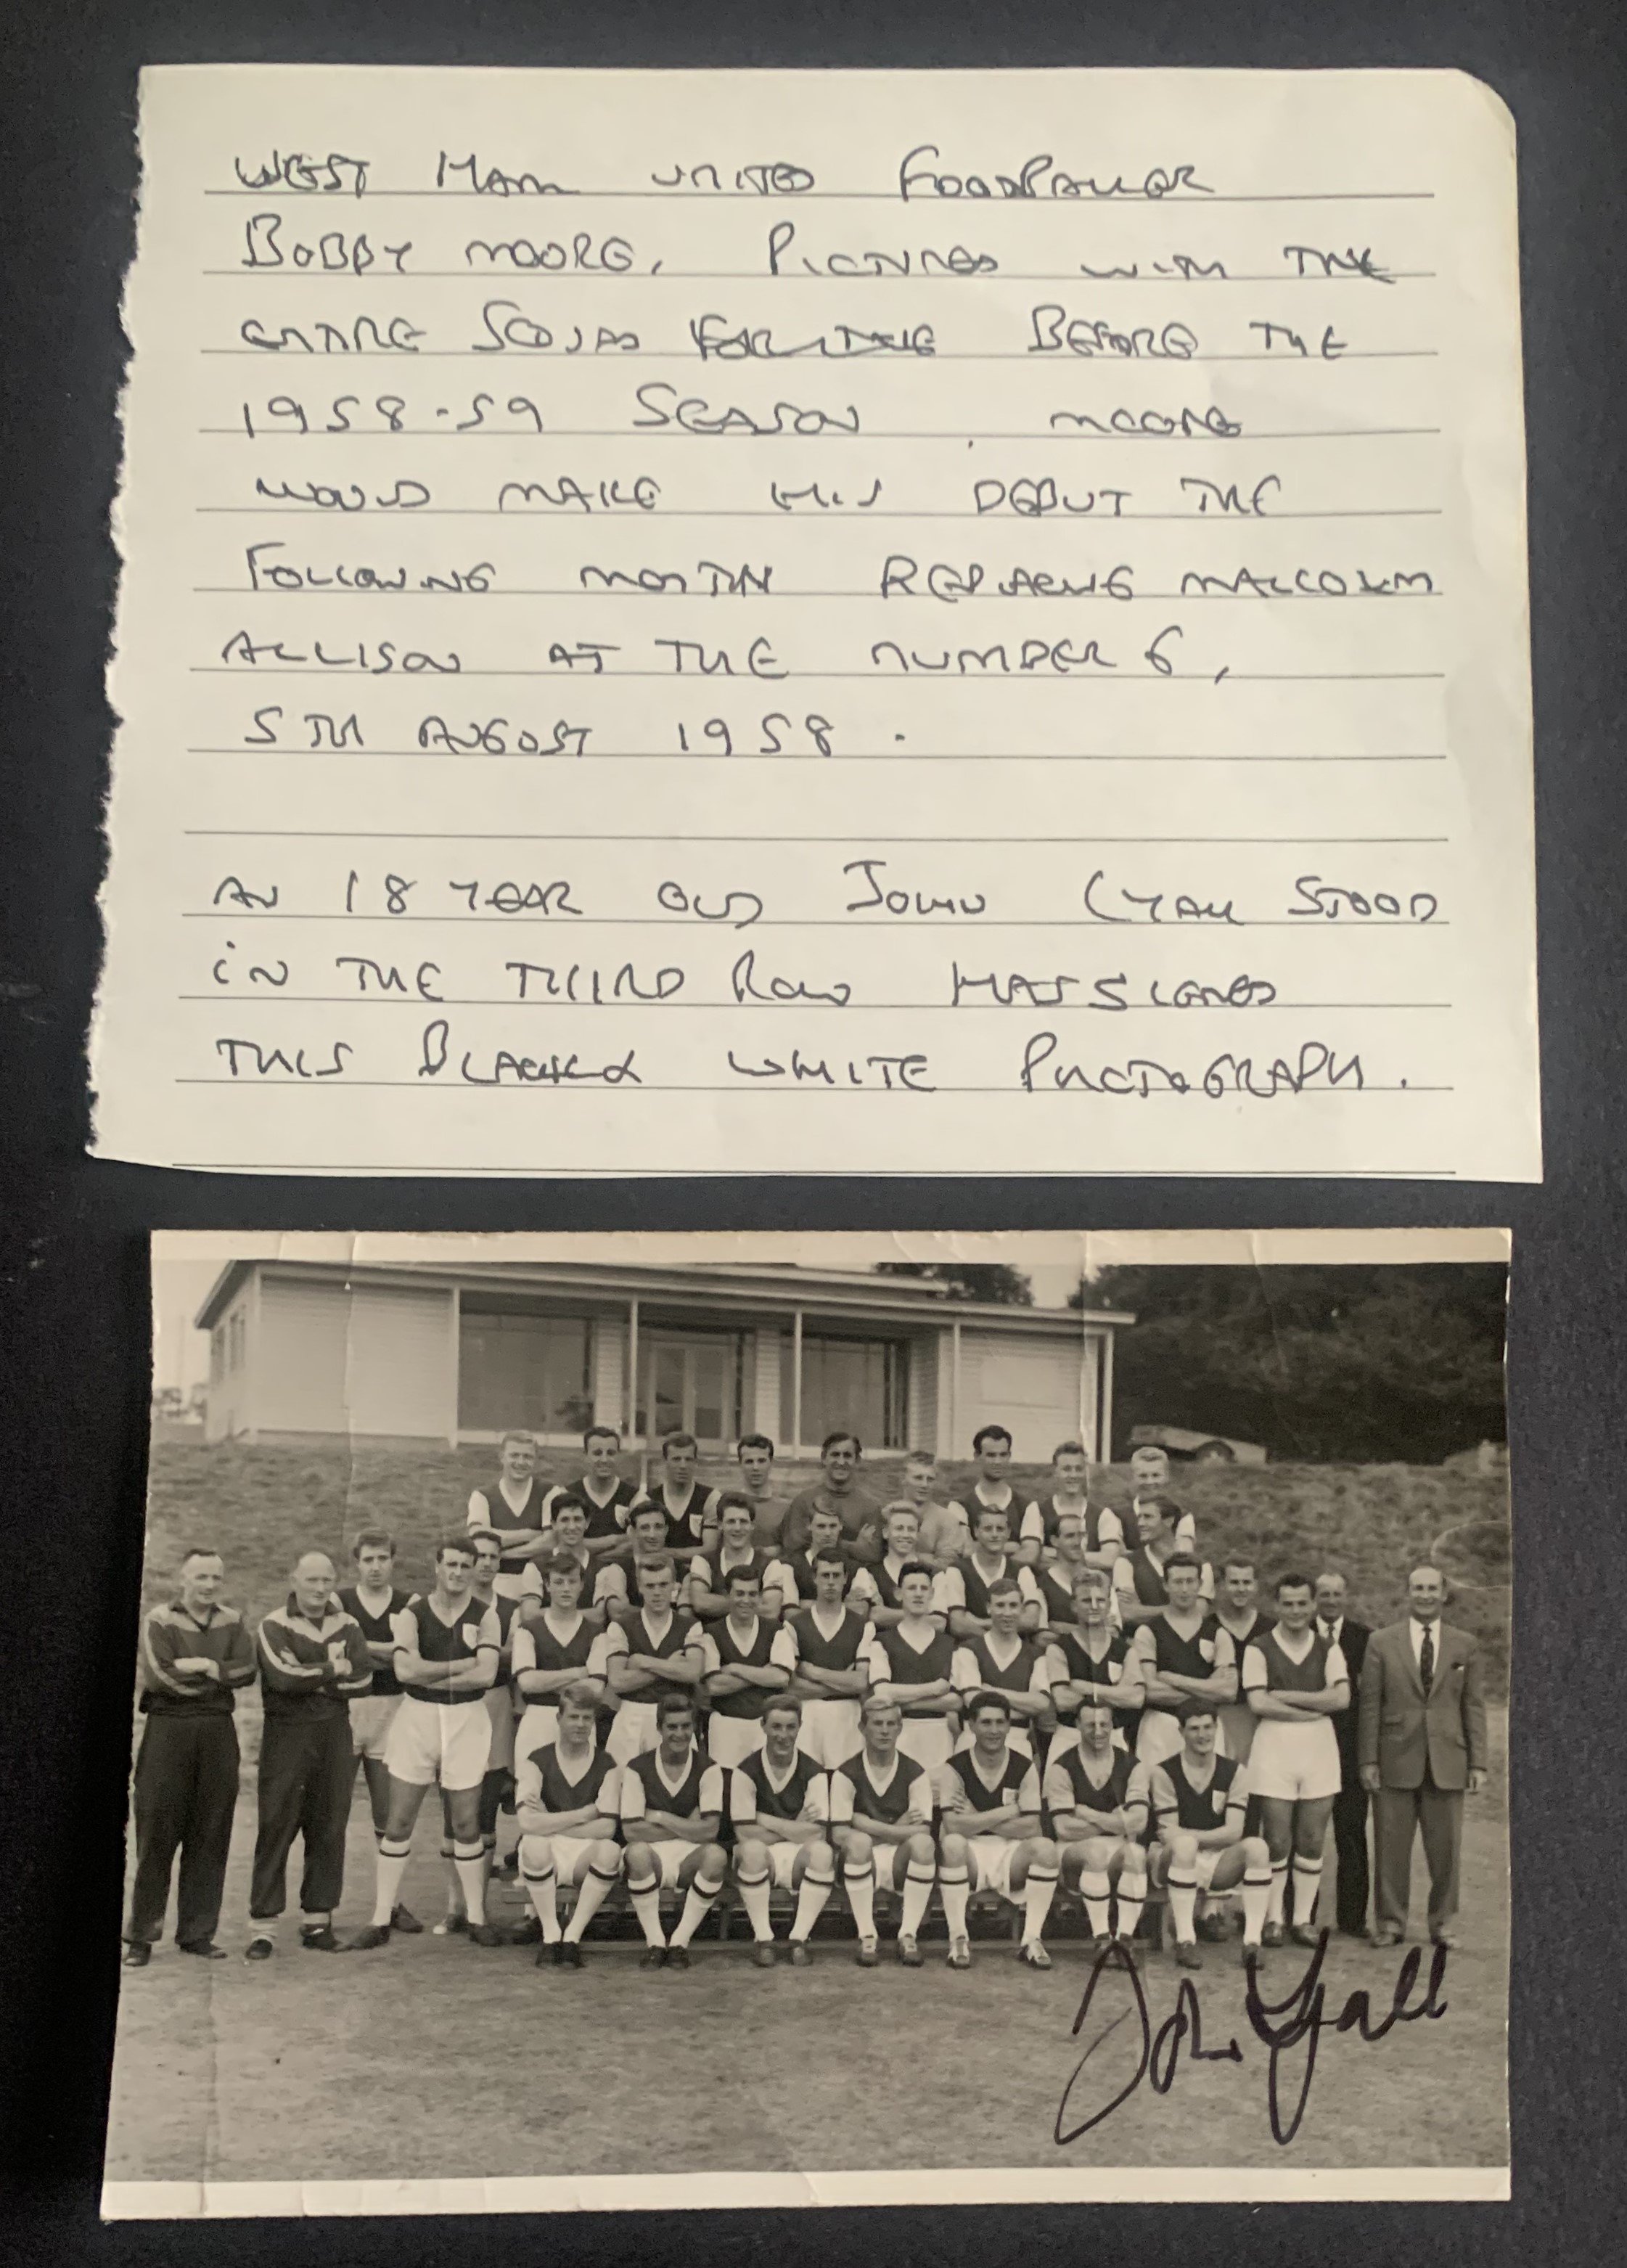 WEST HAM UNITED FOOTBALLER
BOBBY MOORE, PICTURED WITH THE
ENTIRE SQUAD FOR THE BEFORE THE
1958-59 SEASON. MOORE
WOULD MAKE HIS DEBUT THE
FOLLOWING MONTH REPLACING MALCOLM
ALLISON AT THE NUMBER 6,
5TH AUGUST 1958.
AN 18 YEAR OLD JOHN LYALL STOOD
IN THE THIRD ROW HAS SIGNED
THIS BLACK & WHITE PHOTOGRAPH.
John Lyall